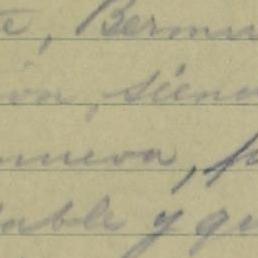 , Bermu
ón, siend
nueva, f
able y qu